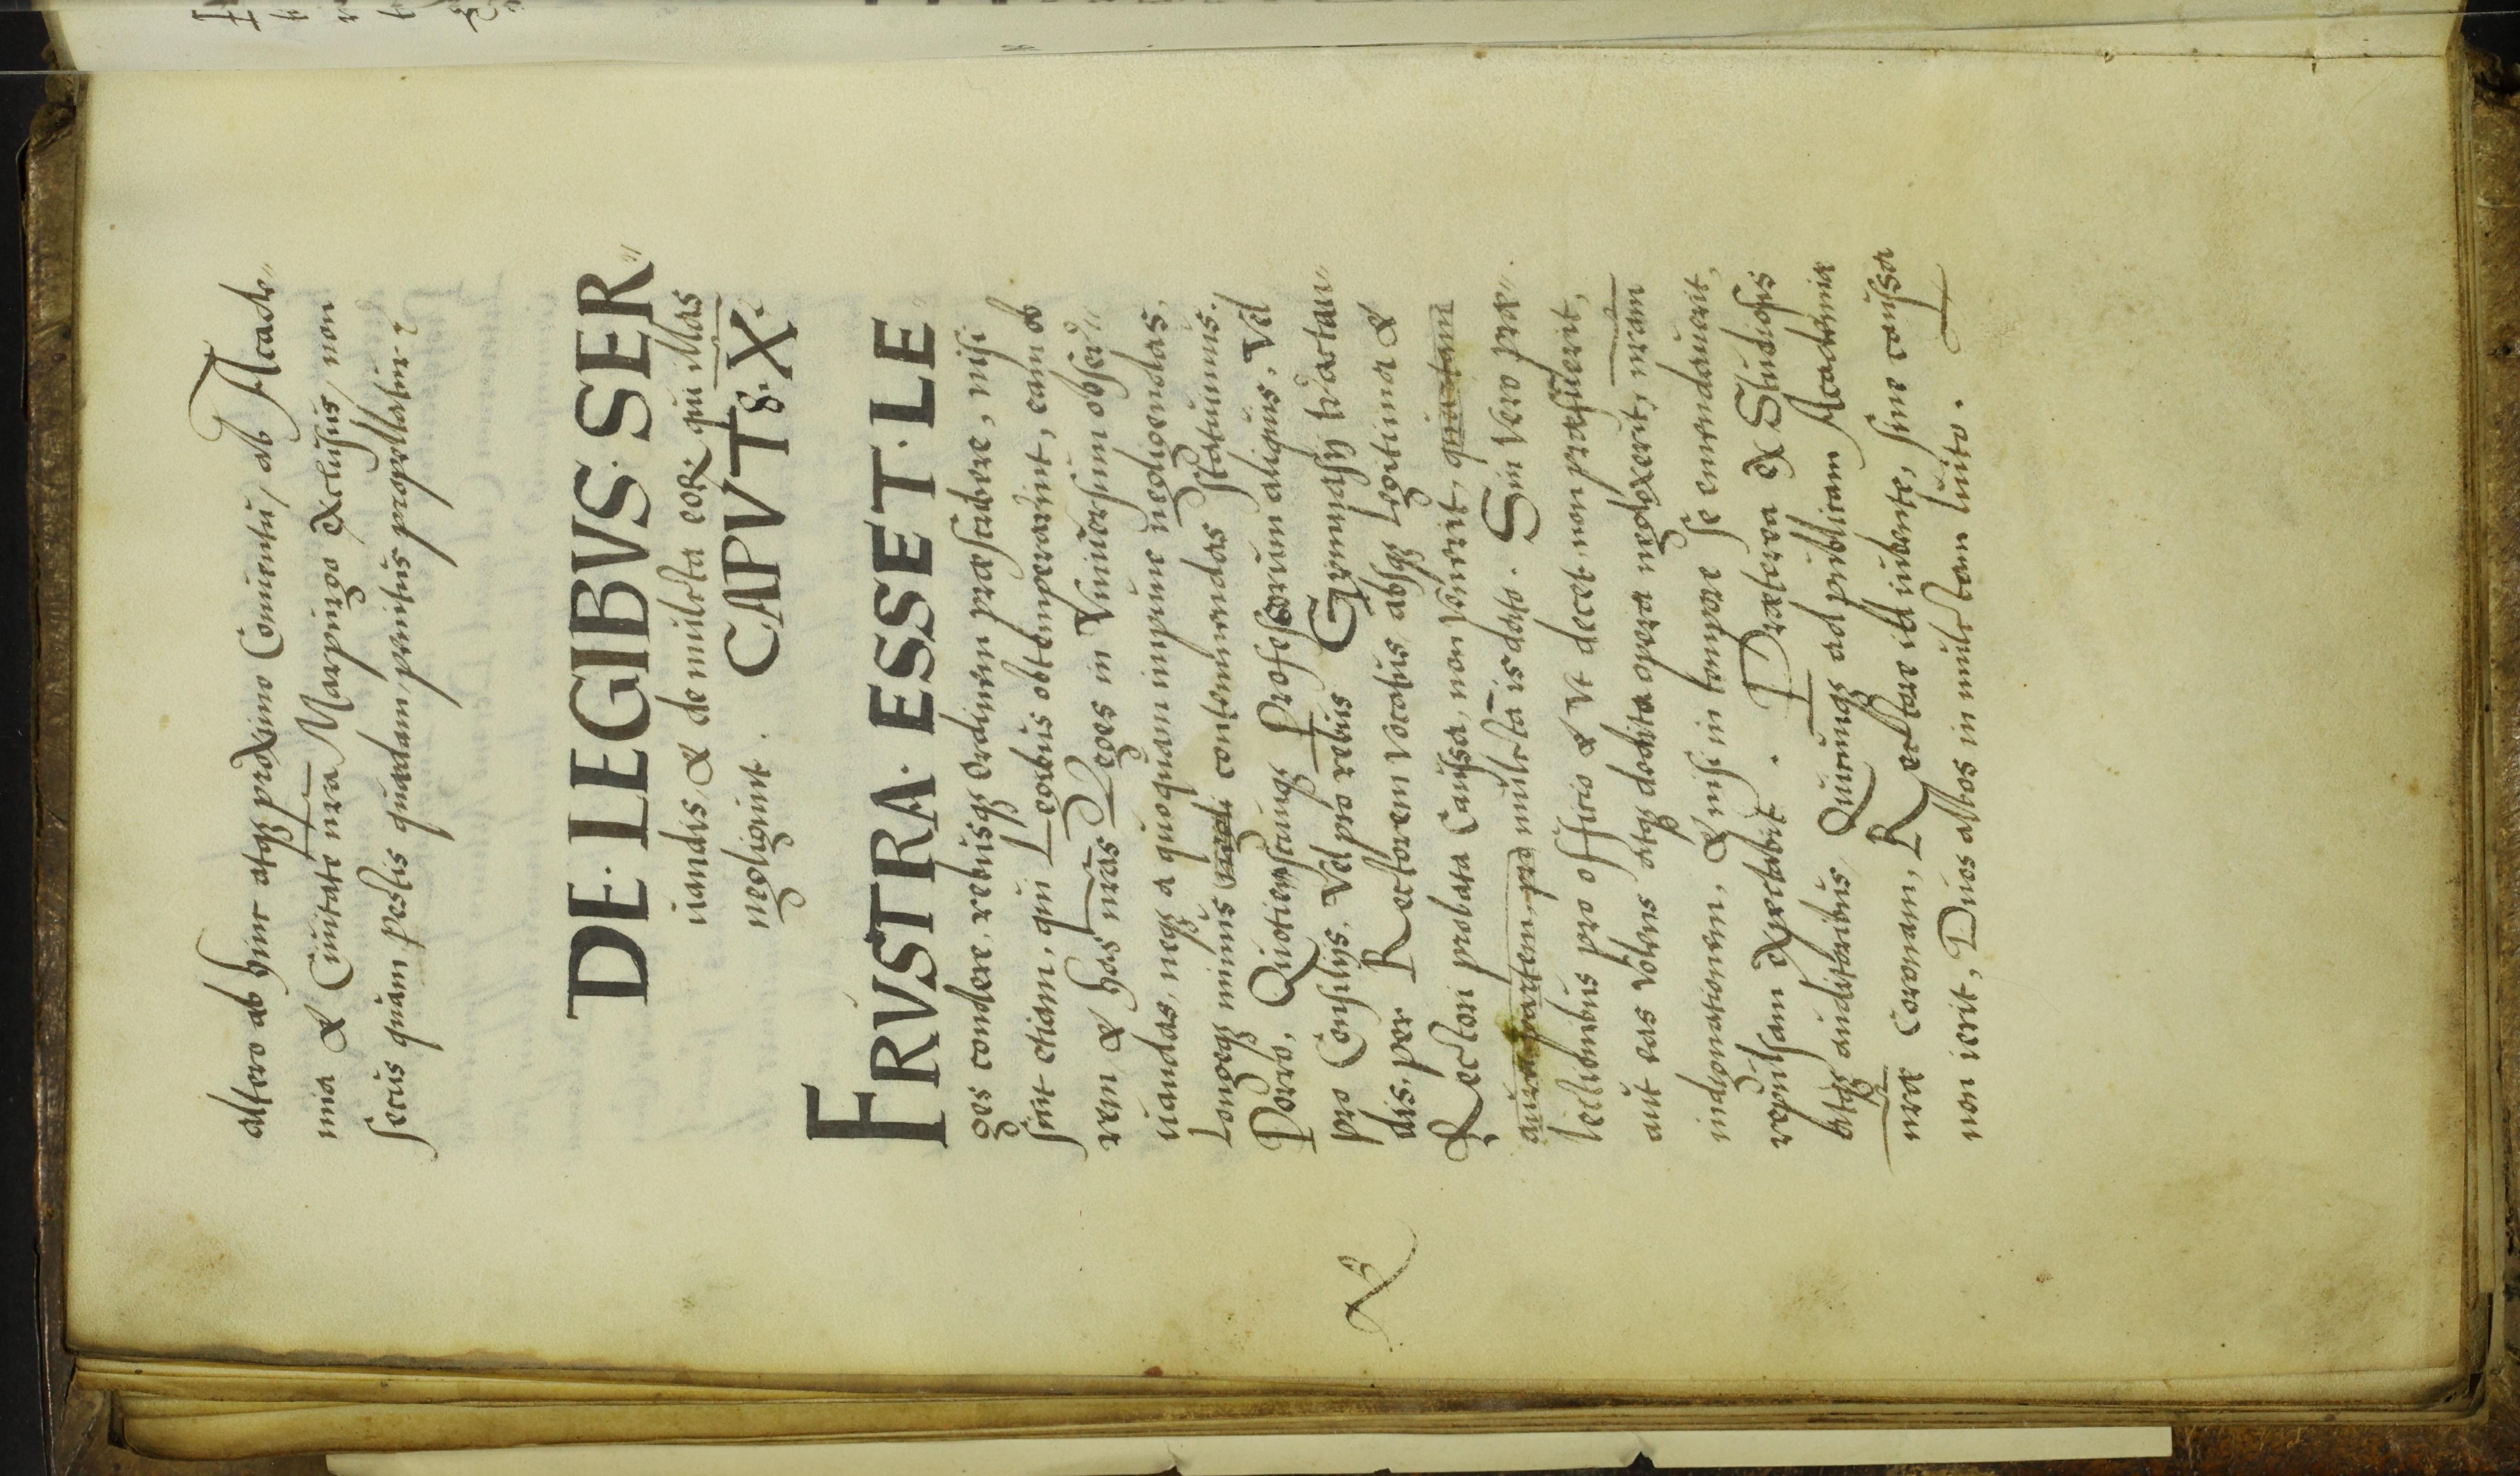 altero ab hinc atqꝫ proximo Conuentu, ab Acade„
mia & Ciuitate nr̃a Marpurgo exclusus, non
secus quam pestis quædam, penitus propellatur.
DE. LEGIBVS. SER„
uandis, & de mulcta eoꝝ qui illas
negligunt. CAPVT 8. X.
FRVSTRA. ESSET. LE
ges condere, rebusqꝫ Ordinem præscribere, nisi
sint etiam, qui Legibus obtemperarint, eam ob
rem & has nr̃as Leges in Vniuersum obser„
uandas, neqꝫ a quoquam impune negligendas,
Longeqꝫ minus contemnendas statuimus.
Porro, Quotienscunqꝫ Professorum aliquis, Vel
pro Consilijs, Vel pro rebus Gymnasij tractan„
dis, per Rectorem vocatus, absqꝫ Legitima &
Rectori probata Caussa, non venerit, quartam
aurei partem pro mulcta is dato. Sin vero præ„
lectionibus pro officio & vt decet non præfuerit,
aut eas volens atqꝫ dedita opera neglexerit, nr̃am
indignationem, & nisi in tempore se emendauerit,
repulsam expectabit. Præterea ex Studiosis
atqꝫ auditoribus Quicunqꝫ ad publicam Academiæ
nr̃æ Coronam, Rectore id iubente, sine caussa
non ierit, Duos albos in mulctam luito.